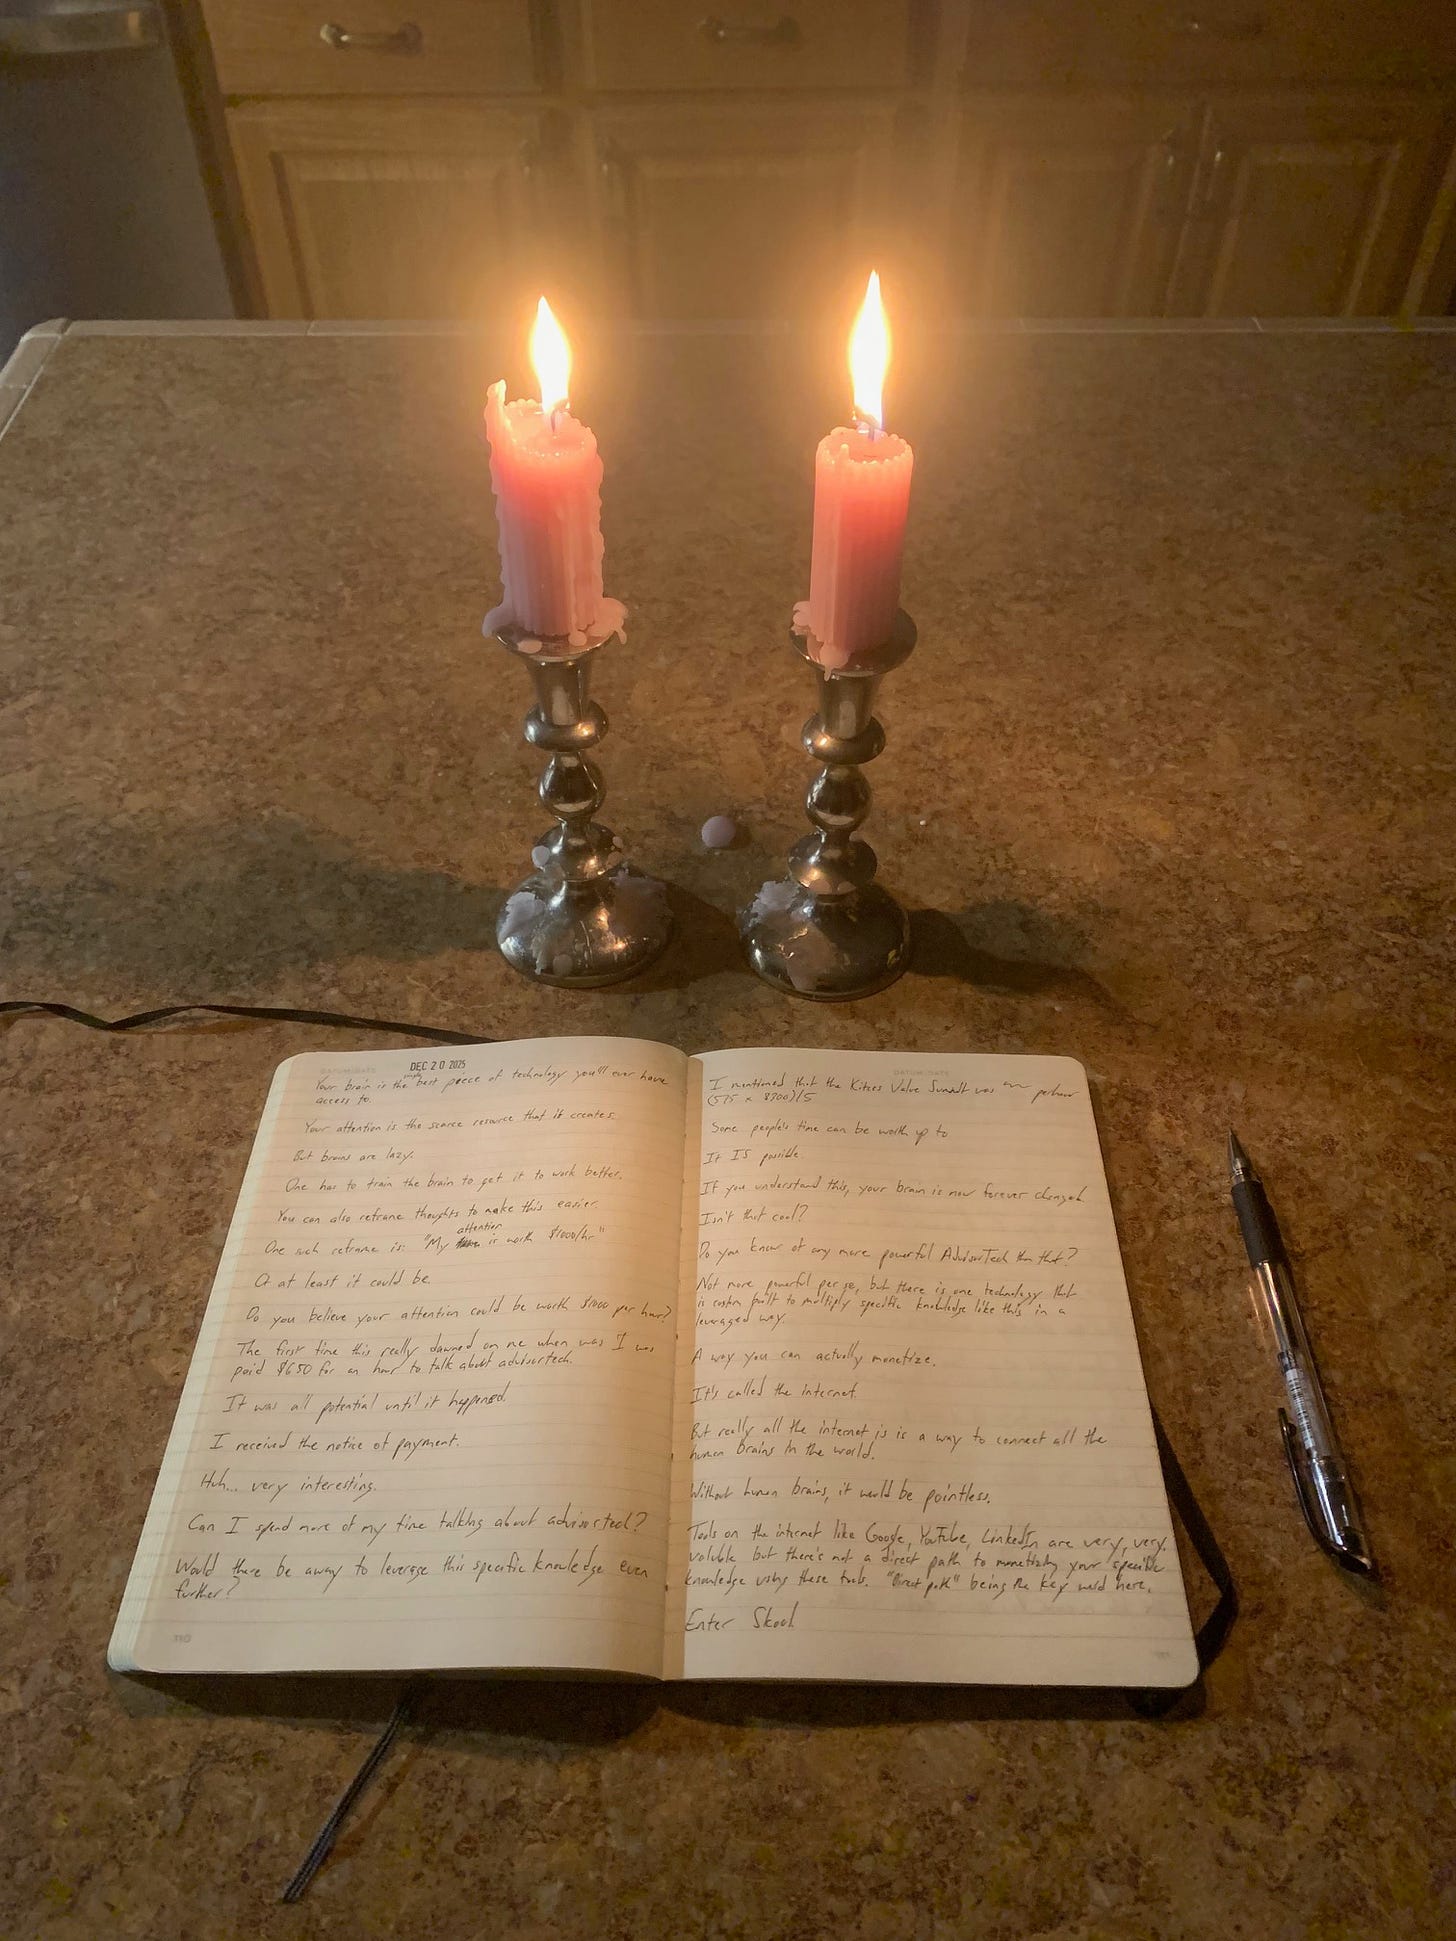 DEC 20 2025
simply
Your brain is the best piece of technology you'll ever have
access to.
Your attention is the scarce resource that it creates.
But brains are lazy.
One has to train the brain to get it to work better.
You can also reframe thoughts to make this easier.
attention
One such reframe is: "My is worth $1000/hr"
Or at least it could be.
Do you believe your attention could be worth $1000 per hour?
The first time this really dawned on me when was I was
paid $650 for an hour to talk about advisortech.
It was all potential until it happened.
I received the notice of payment.
Huh... very interesting.
Can I spend more of my time talking about advisortech?
Would there be a way to leverage this specific knowledge even
further?
I mentioned that the Kitces Value Summit was
(575 x )/5
Some people's time can be worth up to
It IS possible.
If you understand this, your brain is now forever changed.
Isn't that cool?
Do you know of any more powerful AdvisorTech than that?
Not more powerful per se, but there is one technology that
is custom built to multiply specific knowledge like this in a
leveraged way.
A way you can actually monetize.
It's called the internet.
But really all the internet is is a way to connect all the
human brains in the world.
Without human brains, it would be pointless.
Tools on the internet like Google, YouTube, LinkedIn are very, very
valuable but there's not a direct path to monetizing your specific
knowledge using these tools. "Direct path" being the key word here.
Enter Skool